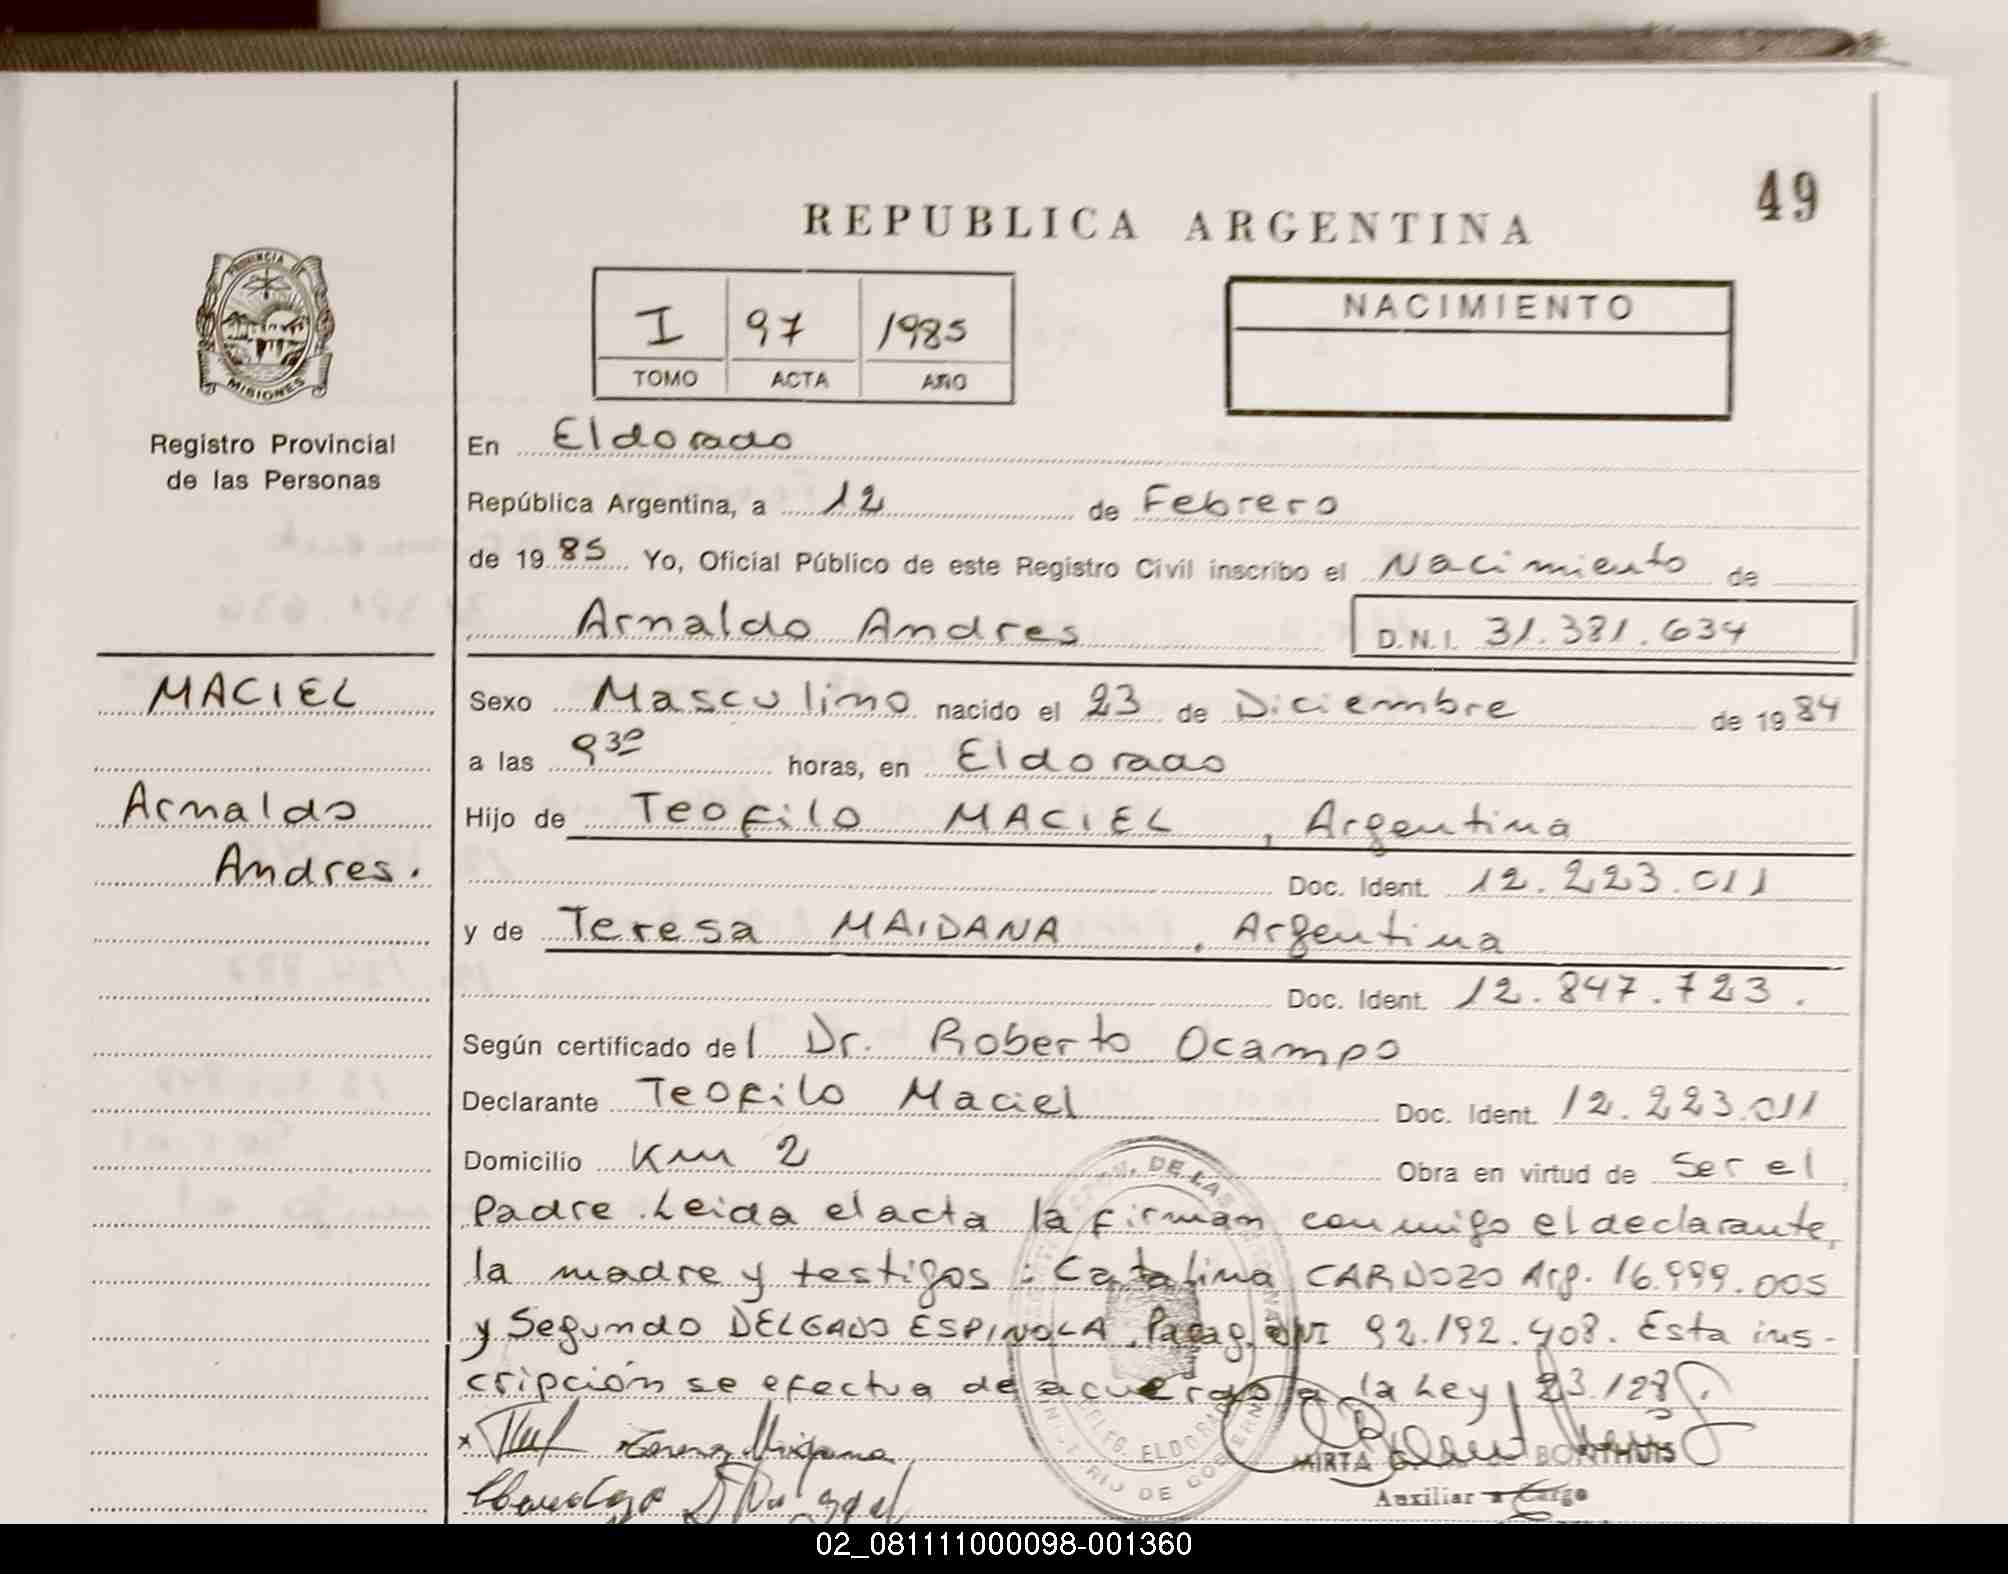 49
REPUBLICA ARGENTINA
I 97 1985
TOMO ACTA AÑO
NACIMIENTO
PROVINCIA DE
MISIONES
Registro Provincial
de las Personas
En Eldorado
República Argentina, a 12 de Febrero
de 19 85 Yo, Oficial Público de este Registro Civil inscribo el Nacimiento de
Arnaldo Andres D.N.I. 31.381.634
MACIEL
Arnaldo
Andres.
Sexo Masculino nacido el 23 de Diciembre de 19 84
a las 9 30 horas, en Eldorado
Hijo de Teofilo MACIEL, Argentina
Doc. Ident. 12.223.011
y de Teresa MAIDANA, Argentina
Doc. Ident. 12.847.723.
Según certificado del Dr. Roberto Ocampo
Declarante Teofilo Maciel Doc. Ident. 12.223.011
Domicilio Km 2 Obra en virtud de Ser el
Padre. Leida el acta la firman conmigo el declarante,
la madre y testigos: Catalina CARDOZO Arg. 16.999.005
y Segundo DELGADO ESPINOLA, Parag. DNI 92.192.408. Esta ins-
cripción se efectua de acuerdo a la Ley 23.128.
MIRTA G. BONTHUIS
Auxiliar a Cargo
02_081111000098-001360